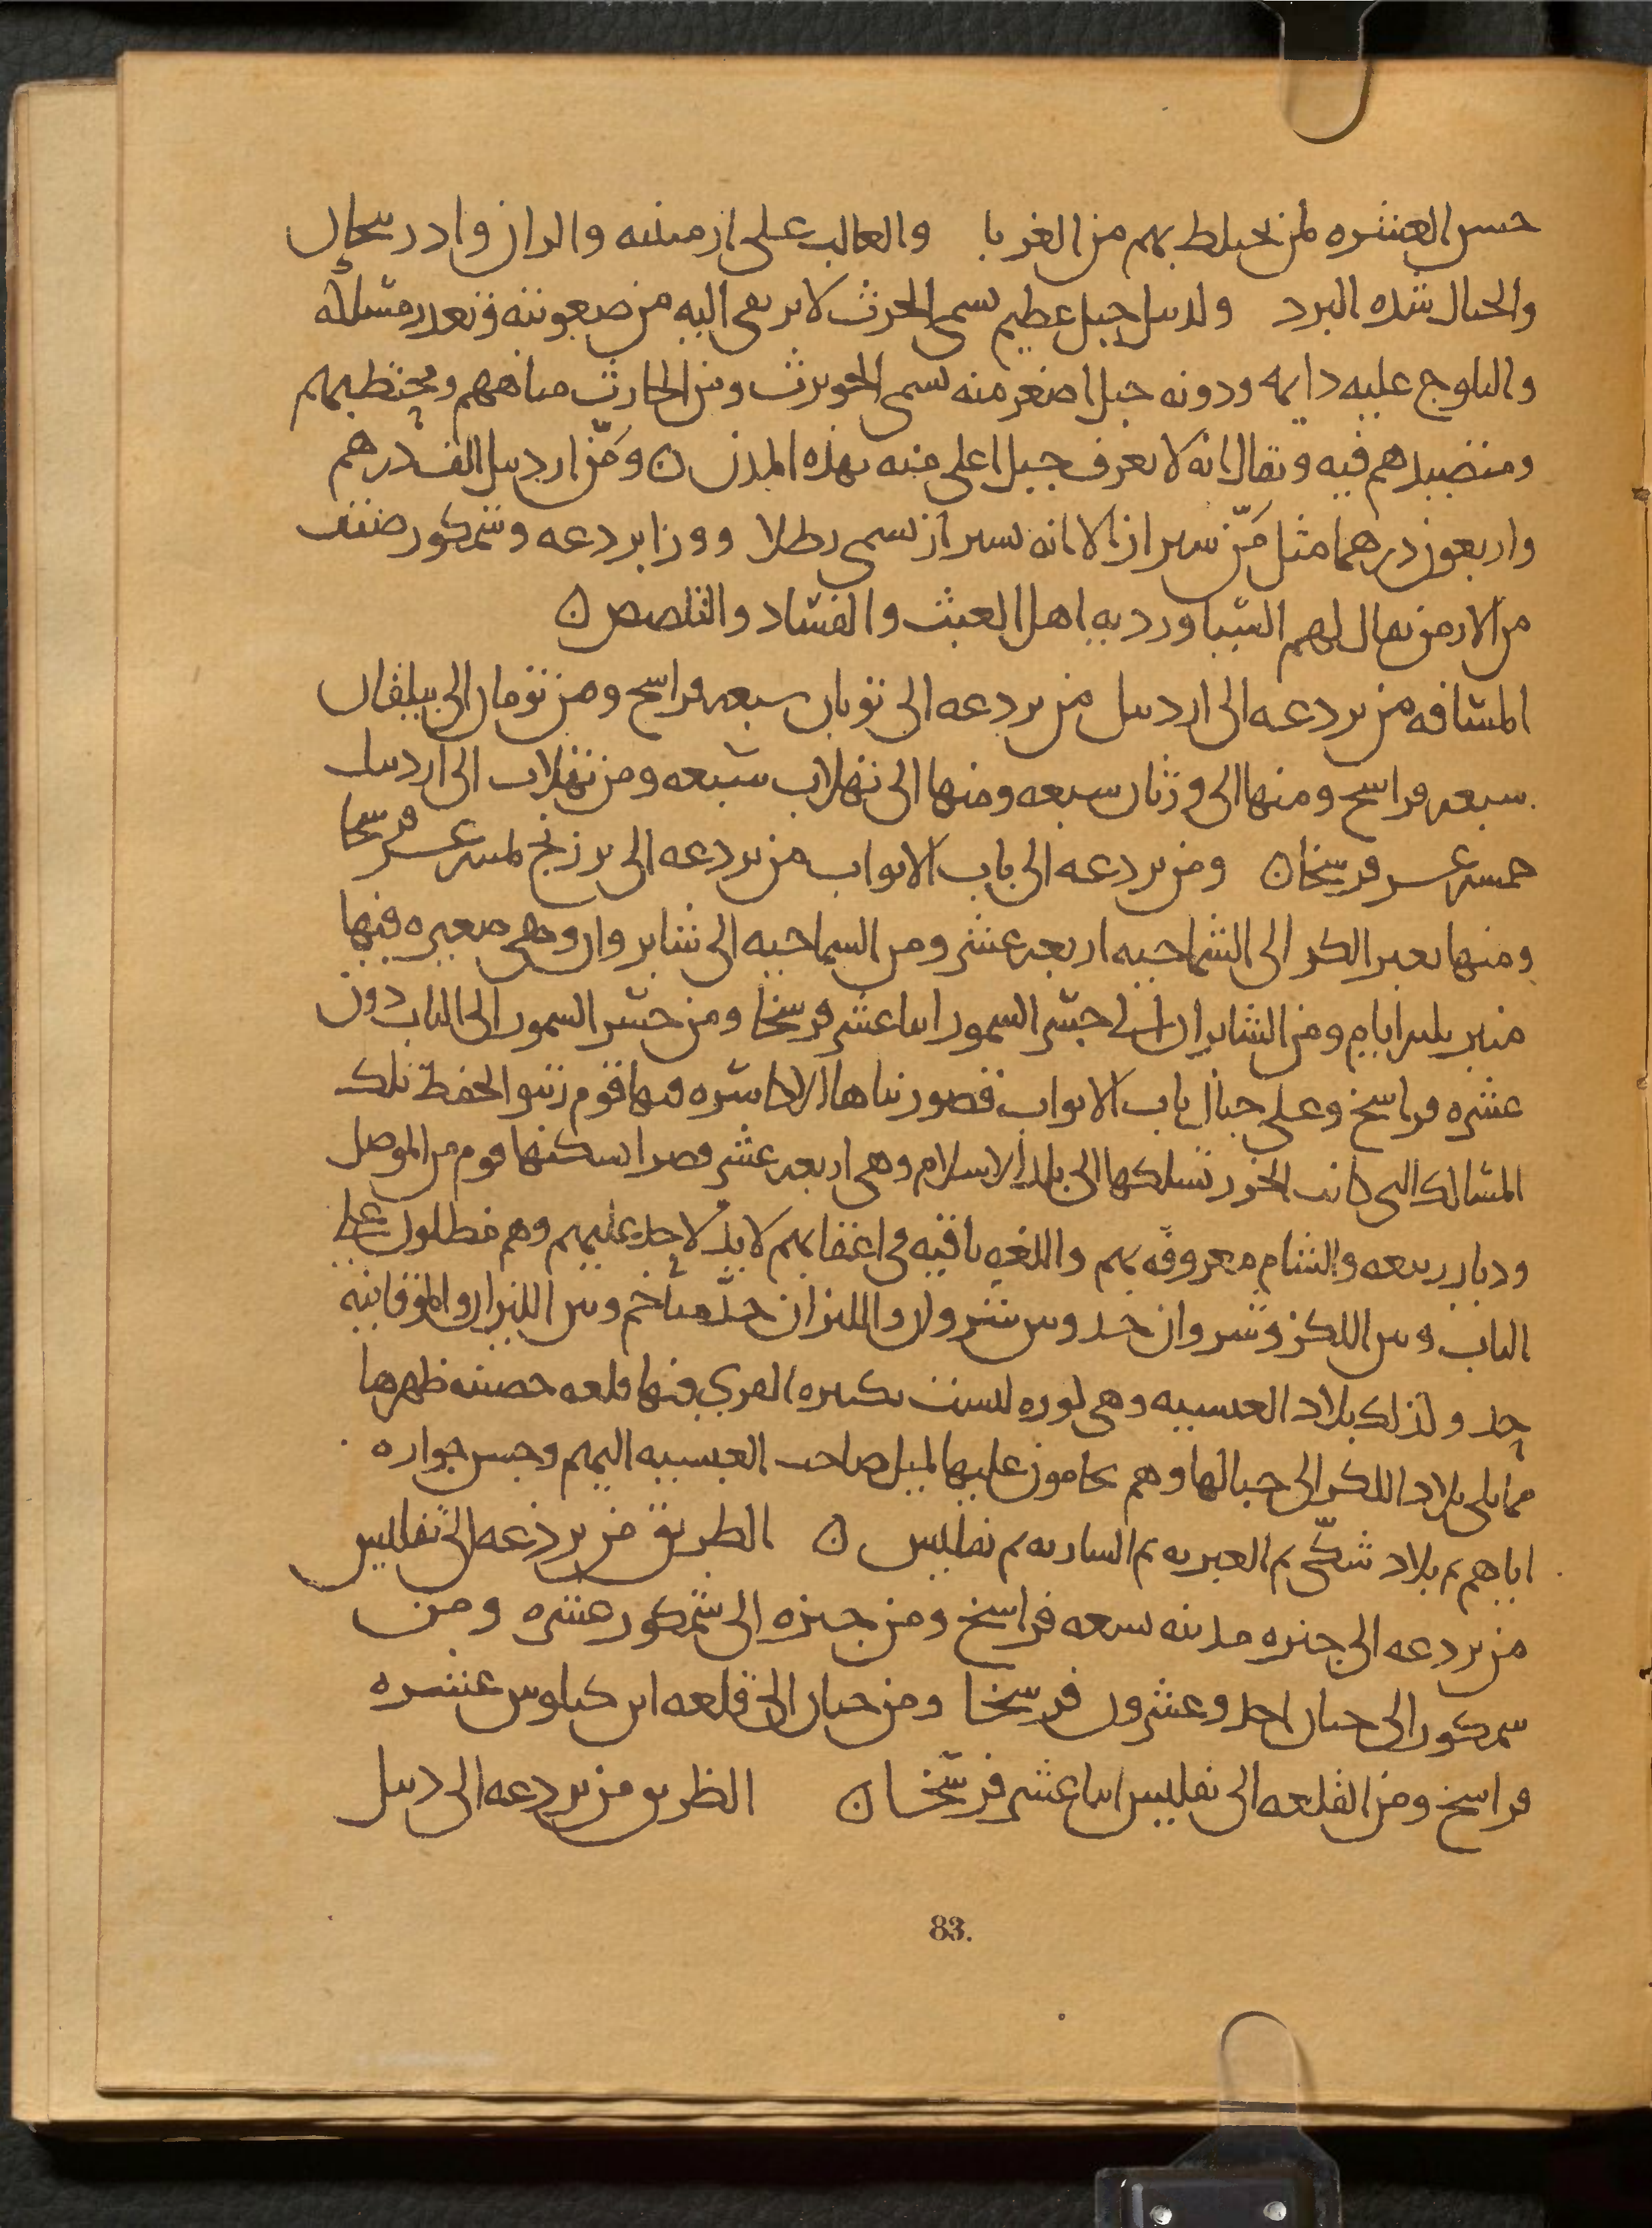 حسن العشره لمن يختلط بهم من الغربا والغالب على ارمينيه والران وادربيجان
والجبال شده البرد ولدبيل جبل عظيم يسمى الحرث لا يرتقى اليه من صعوبته وتعدر مسلكه
والثلوج عليه دايمه ودونه جبل اصغر منه يسمى الحويرث ومن الحارث مياههم ومحتطبهم
ومتصيدهم فيه ويقال انه لا يعرف جبل اعلى منه بهذه المدن ومَنّ اردبيل الف درهم
واربعون درهما مثل مَنّ شيراز الا انه بشيراز يسمى رطلا ووزا بردعه وشمكور صنف
من الارمن يقال لهم السياورديه اهل العبث والفساد والتلصص
المسافه من بردعه الى اردبيل من بردعه الى يونان سبعه فراسخ ومن الى بيلقان
سبعه فراسخ ومنها الى ورثان سبعه ومنها الى بلخاب سبعه ومن الى اردبيل
خمسه عشر فرسخا ومن بردعه الى باب الابواب من بردعه الى برزنج ثمنيه عشر فرسخا
ومنها يعبر الكر الى الشماخيه اربعه عشر ومن الشماخيه الى شابروان وهى صغيره فيها
منبر ثلثه ايام ومن الشابران الى جسر السمور اثنا عشر فرسخا ومن جسر السمور الى الباب دون
عشره فراسخ وعلى جبال باب الابواب قصور بناها الاكاسره وبها قوم رتبوا لحفظ تلك
المسالك التى كانت الخزر تسلكها الى بلد الاسلام وهى اربعه عشر قصرا يسكنها قوم من الموصل
وديار ربيعه والشام معروفه بهم واللغه باقيه فى اعقابهم لا يد لاحد عليهم وهم مطلون على
الباب وبين اللكز وشروان حد وبين شروان والليزان حد متاخم وبين الليزان والموقانيه
حد وكذلك بلاد العبسيه وهى كوره ليست بكبيره القرى فيها قلعه حصينه ظهرها
مما يلى بلاد اللكز الى جبالها وهم يحامون عليها لميل صاحب العبسيه اليهم وحسن جواره
اياهم ثم بلاد شكّى ثم ثم ثم تفليس الطريق من بردعه الى تفليس
من بردعه الى جنزه مدينه تسعه فراسخ ومن جنزه الى شمكور عشره ومن
شمكور الى خنان احد وعشرون فرسخا ومن خنان الى قلعه ابن كيلوس عشره
فراسخ ومن القلعه الى تفليس اثنا عشر فرسخا الطريق من بردعه الى دبيل
83.